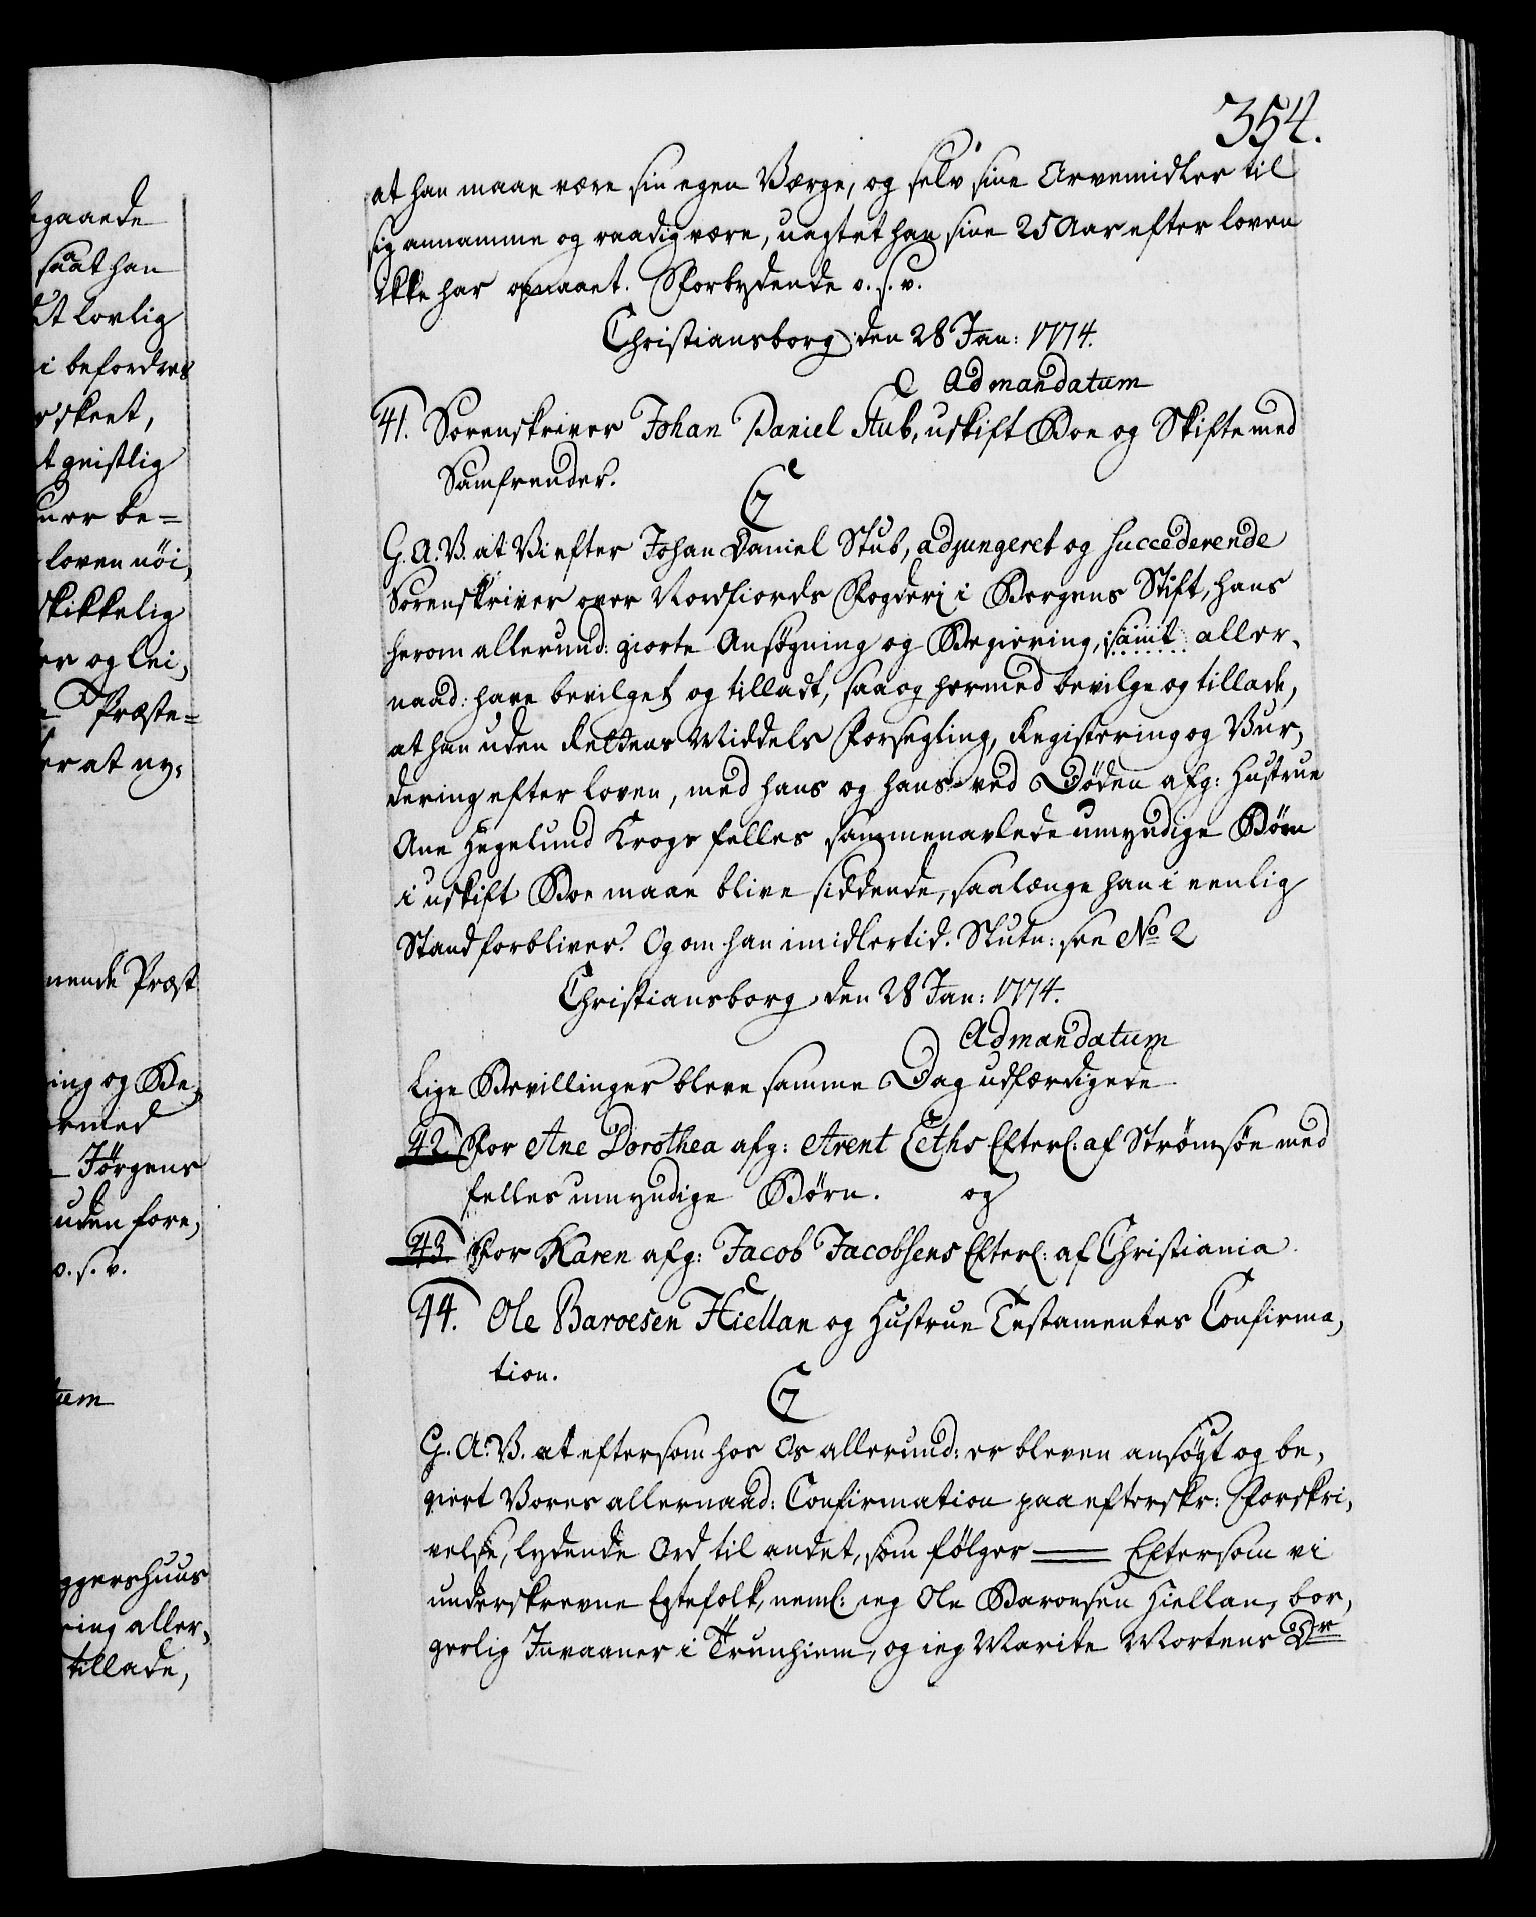 354.
at han maae være sin egen Værge, og selv sine Arvemidler til
sig annamme og raadig være, uagtet han sine 25 Aar efter loven
ikke har opnaaet. Forbydende o. s. v.
Christiansborg den 28 Jan: 1774.
Ad mandatum
41. Sorenskriver Johan Daniel Stub, uskift Boe og Skifte med
Samfrender.
C7
G. A. V. at Vi efter Johan Daniel Stub, adjungeret og succederende
Sorenskriver over Nordfiords Fogderi i Bergens Stift, hans
herom allerund: giorte Ansøgning og Begiering, samt aller-
naad: have bevilget og tilladt, saa og hermed bevilge og tillade,
at han uden Rettens Middels Forsegling, Registering og Vur,
dering efter loven, med hans og hans ved Døden afg: Hustrue
Ane Hegelund Krogs felles sammenavlede umyndige Børn
i uskift Boe maae blive siddende, saalænge han i eenlig
Stand forbliver. Og om han imidlertid. Slutn: see No 2
Christiansborg den 28 Jan: 1774.
Ad mandatum
Lige Bevillinger bleve samme Dag udfærdigede
42 For Ane Dorothea afg: Arent Leths Efterl: af Strømsøe med
felles umyndige Børn. og
43. For Karen afg: Jacob Jacobsens Efterl: af Christiania
44. Ole Baroesen Hiellan og Hustrue Testamentes Confirma,
tion.
C7
G. A. V. at eftersom hos Os allerund: er bleven ansøgt og be,
giert Vores allernaad: Confirmation paa efterskr: Forskri,
velse, lydende Ord til andet, som følger — Eftersom vi
underskrevne Egtefolk, neml: ieg Ole Baroesen Hiellan, bor,
gerlig Invaaner i Trunhiem, og ieg Marite Mortens Dr
egaande
saa at han
dt lovlig
i befordres
r skeet,
t geistlig
uer be=
loven nöi,
skikkelig
er og lei,
Præste=
er at ny,
nende Præst
ing og Be,
ermed
Jørgens
uden fore,
o. s. v.
tum
ggershuus
ring aller,
tillade,